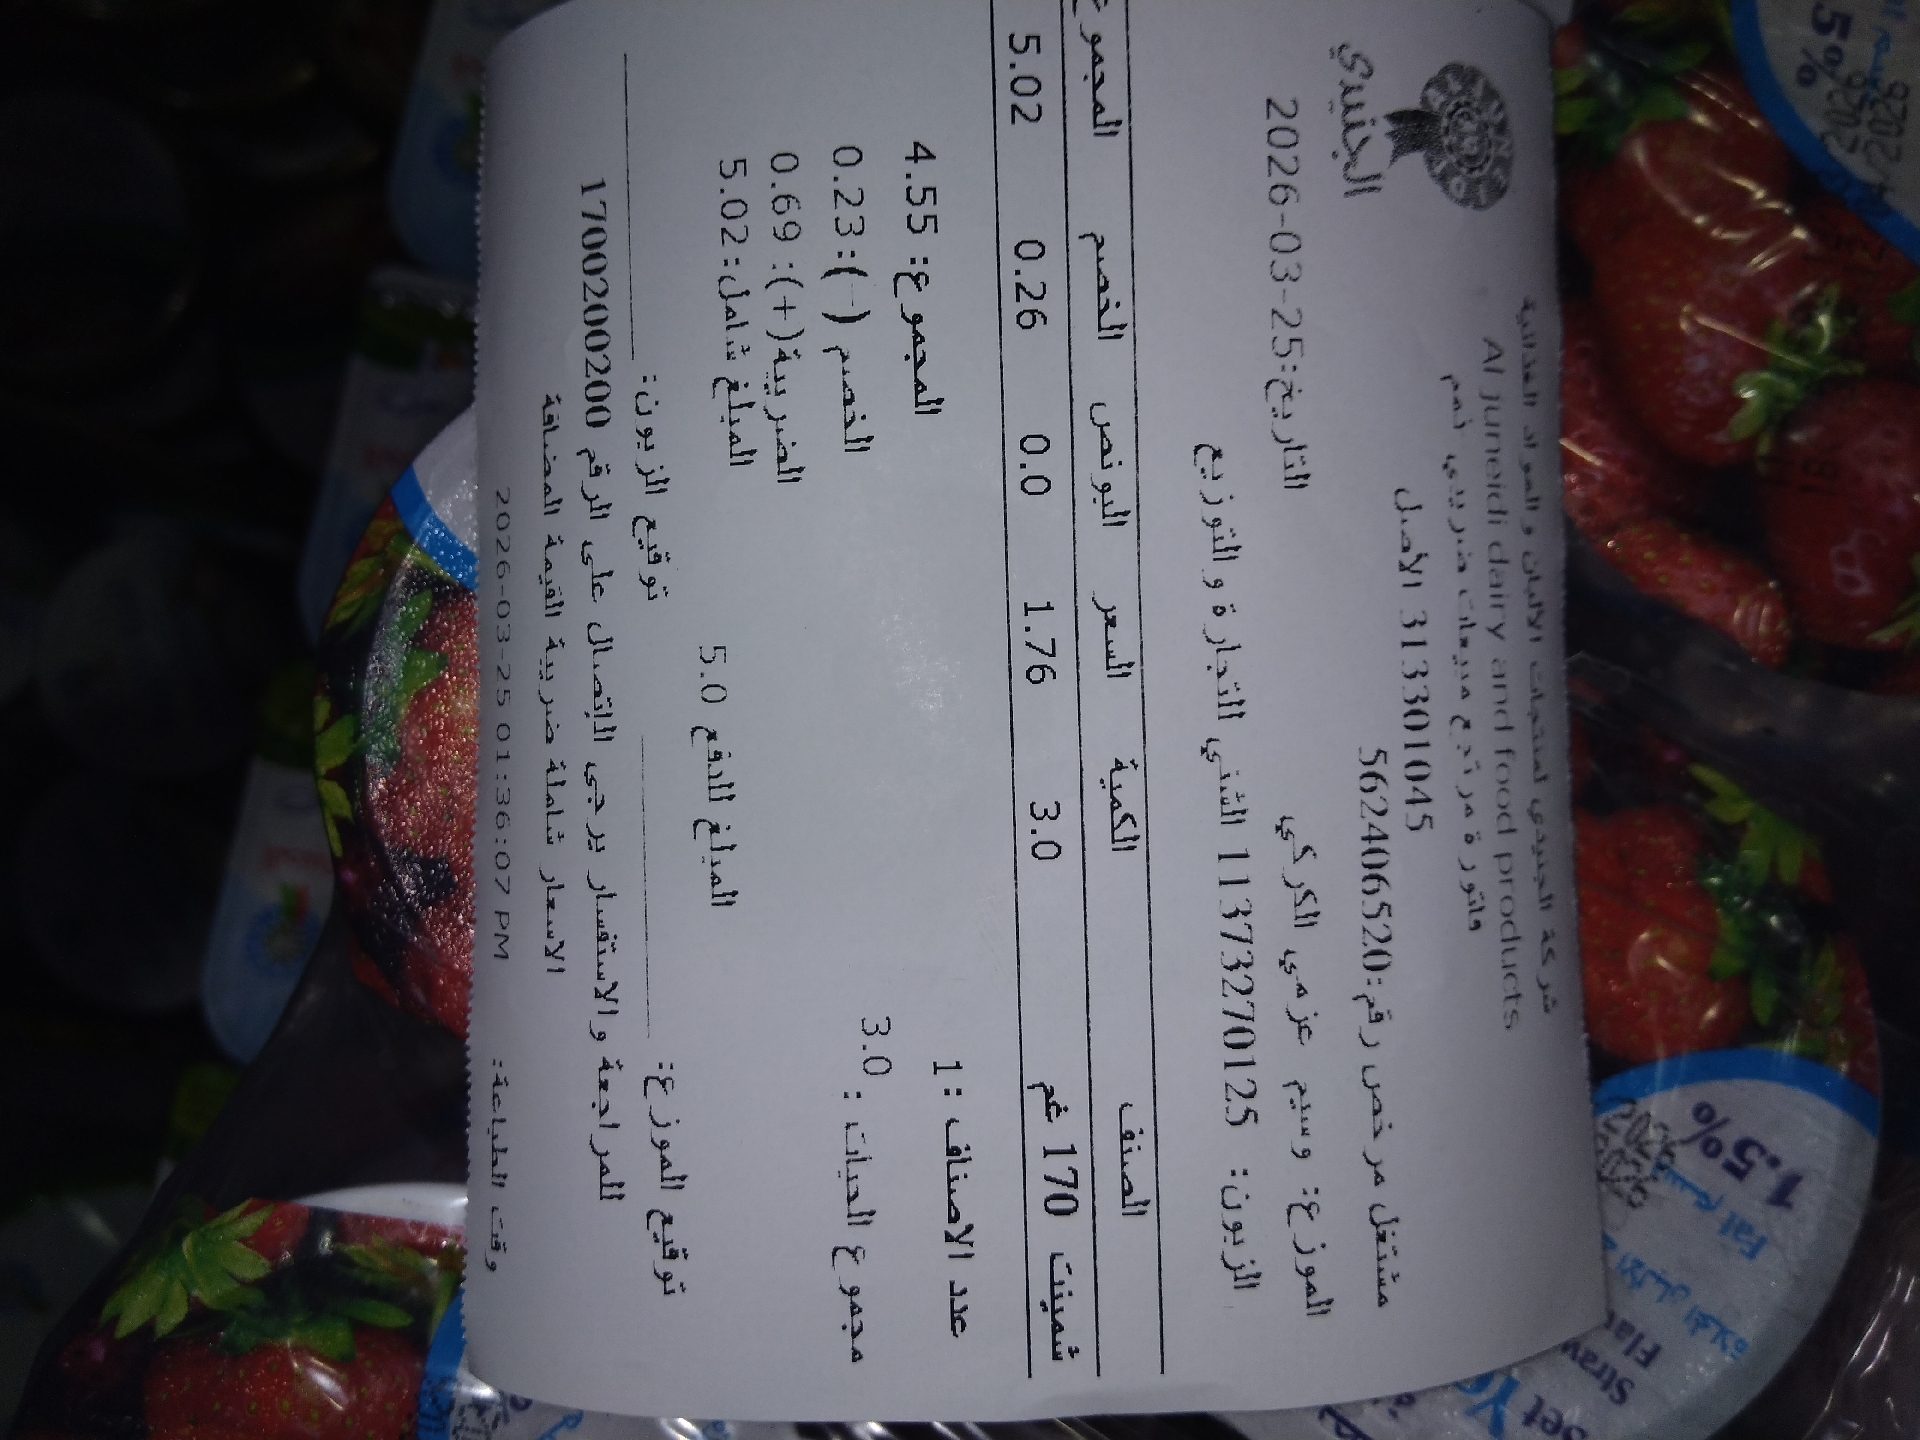 الجنيدي
شركة الجنيدي لمنتجات الألبان والمواد الغذائية
Al juneidi dairy and food products
فاتورة مرتجع مبيعات ضريبي ثمم
313301045 الأصل
مشتغل مرخص رقم:562406520
الموزع: وسيم عزمي الكركي
التاريخ:2026-03-25
الزبون: 11373270125 الشني للتجارة والتوزيع
الصنف الكمية السعر البونص الخصم المجموع
شمينت 170 غم 3.0 1.76 0.0 0.26 5.02
عدد الاصناف :1
المجموع: 4.55
مجموع الحبات : 3.0
الخصم (-):0.23
الضريبة(+): 0.69
المبلغ شامل:5.02
المبلغ للدفع 5.0
توقيع الموزع:
توقيع الزبون:
للمراجعة والاستفسار يرجى الإتصال على الرقم 1700200200
الاسعار شاملة ضريبة القيمة المضافة
وقت الطباعة: 2026-03-25 01:36:07 PM
1.5%
Fat